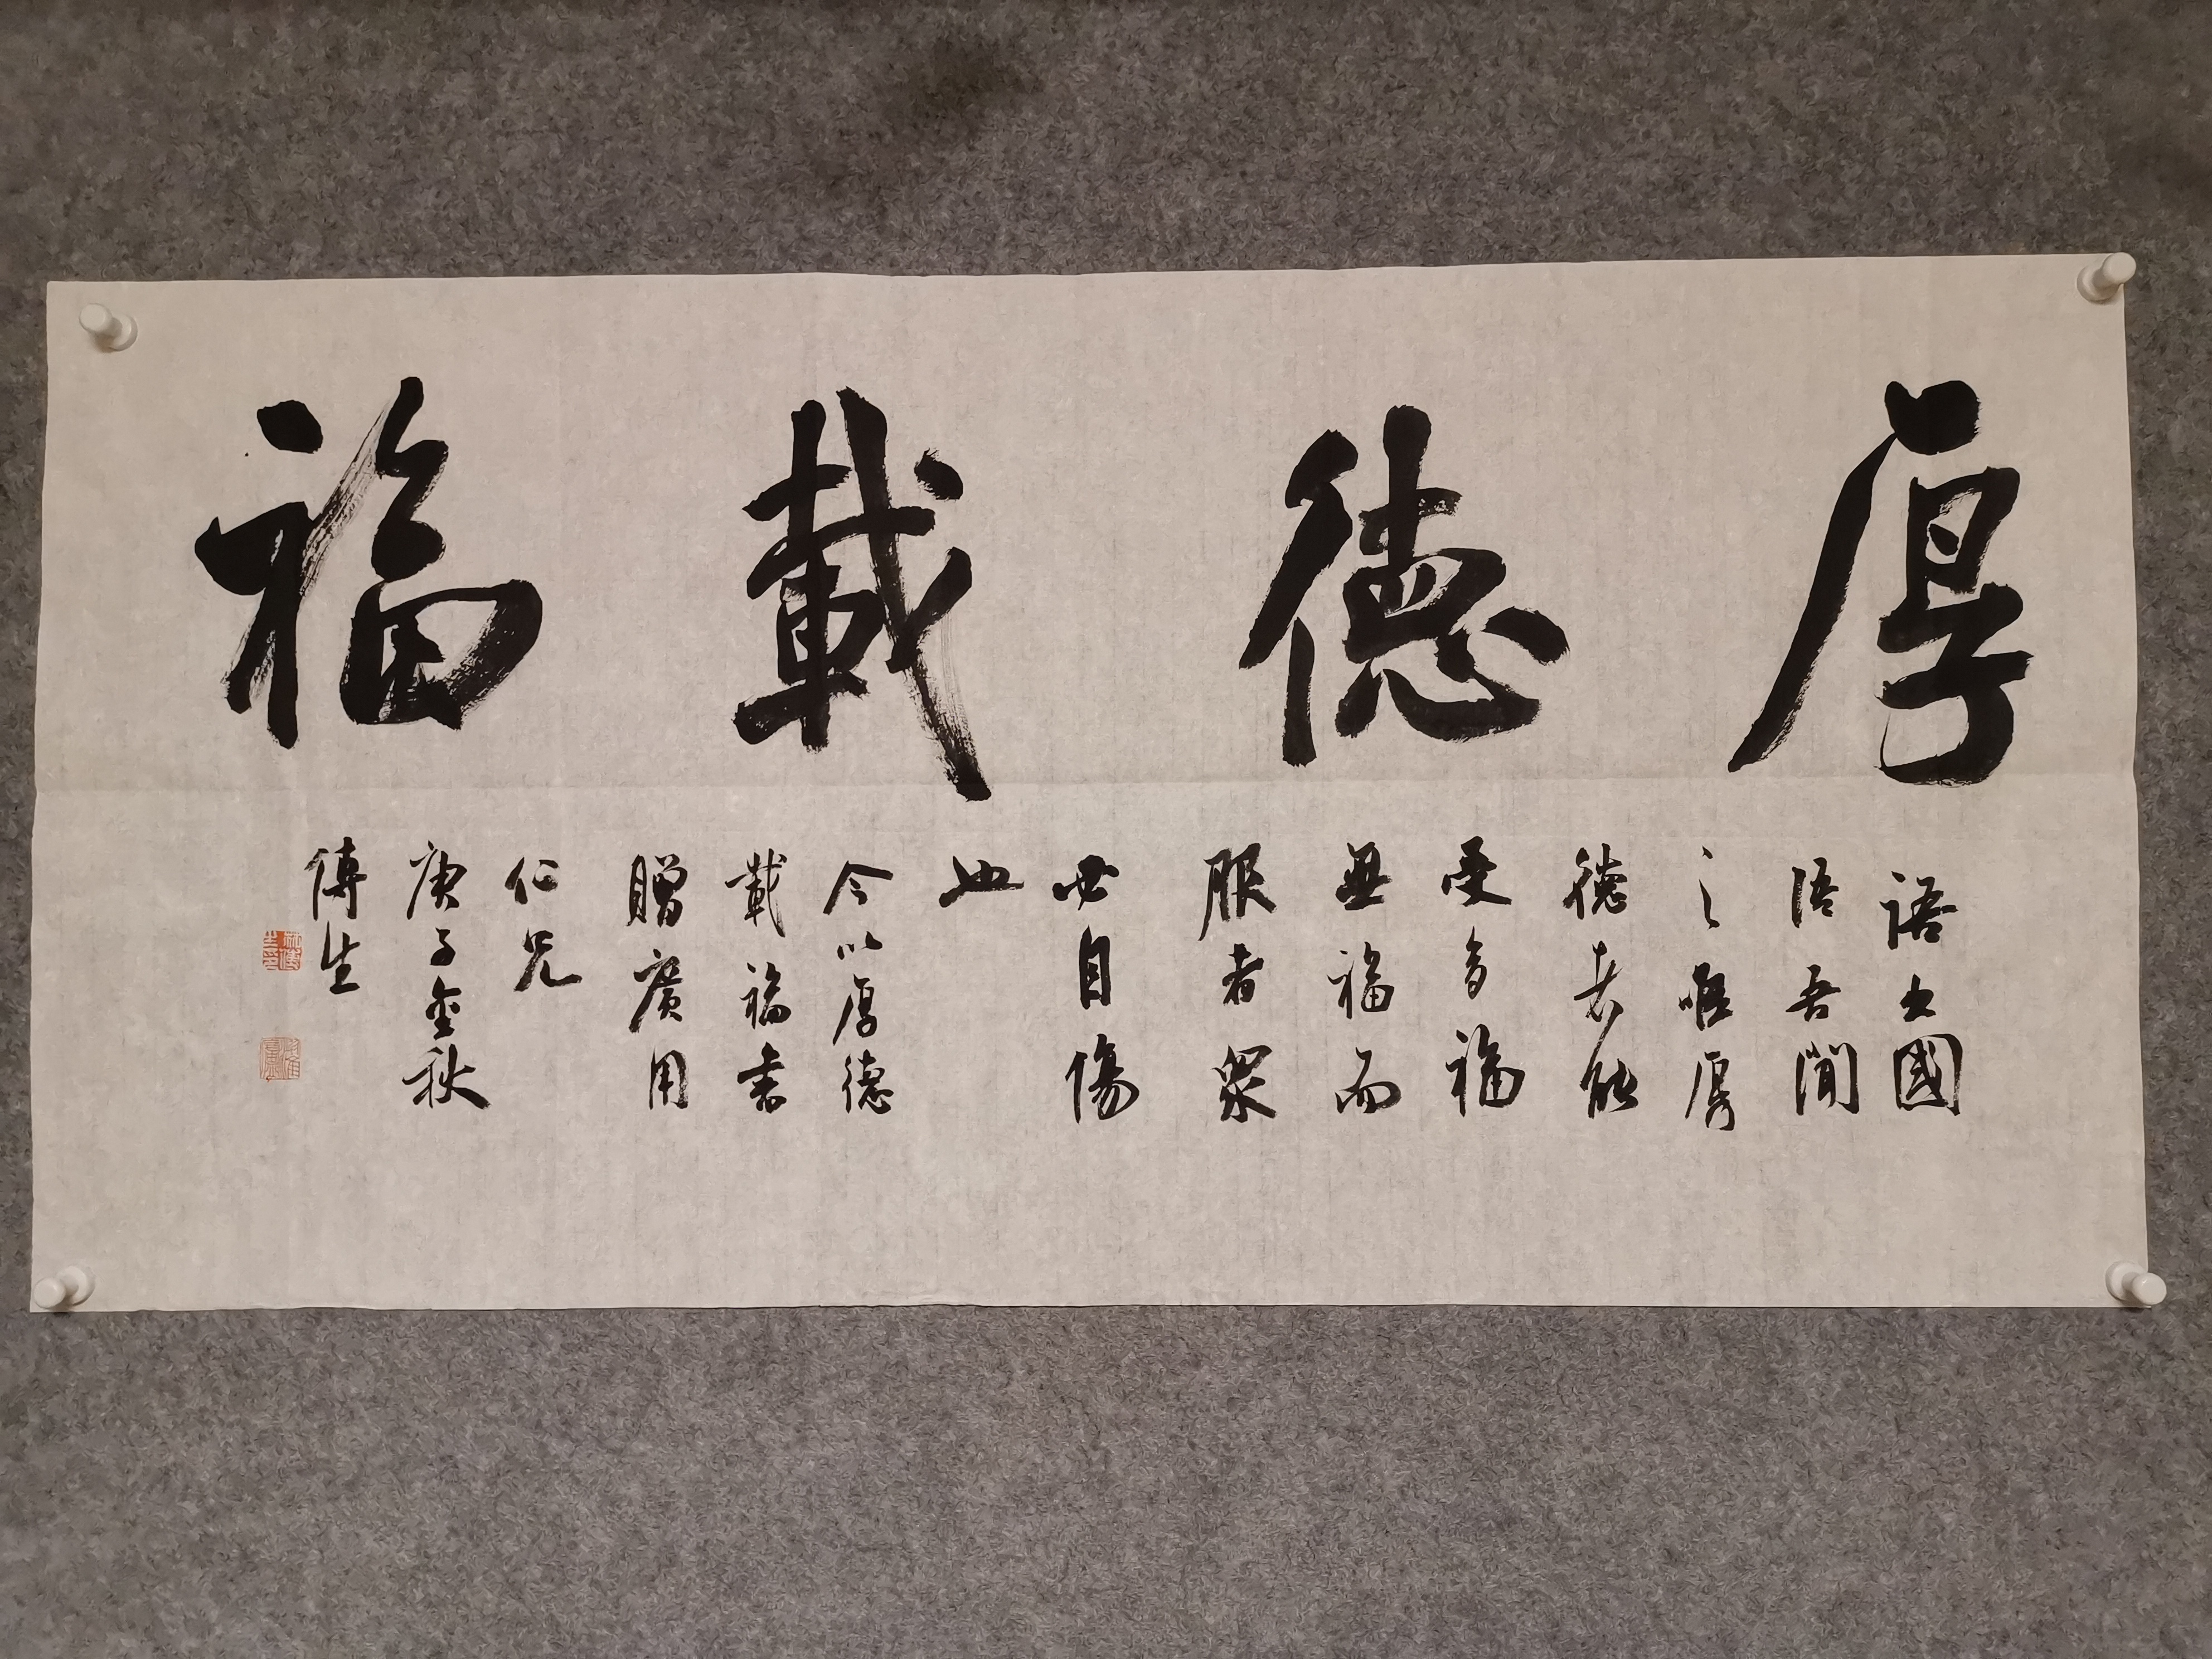 厚德載福
語出國
語吾聞
之唯厚
德者能
受多福
無福而
服者眾
必自傷
也
今以厚德
載福書
贈廣用
仁兄
庚子金秋
傳生